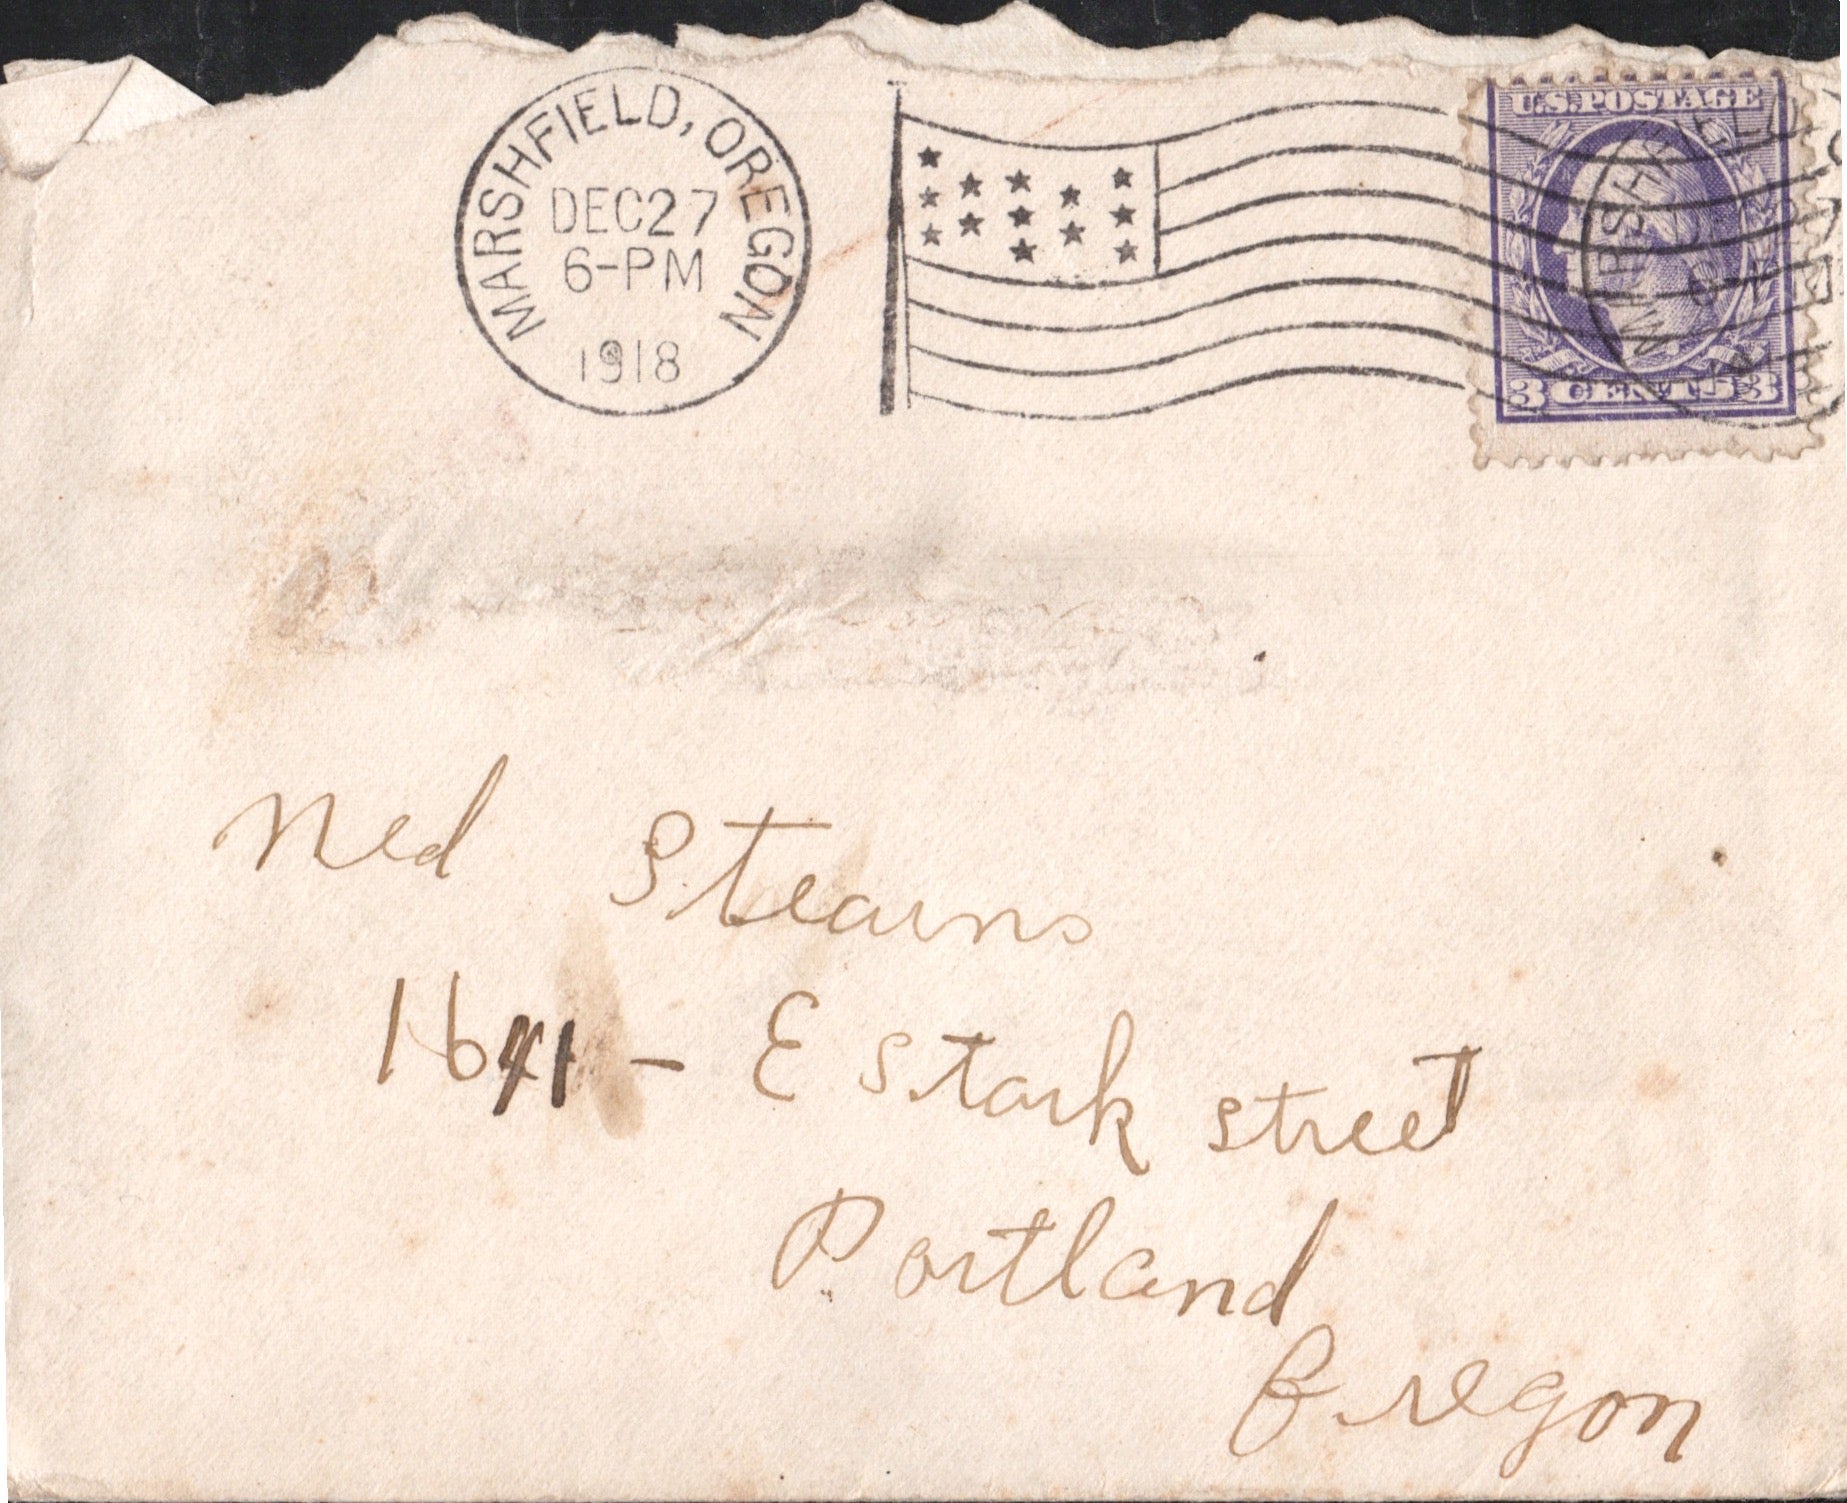 MARSHFIELD, OREGON
DEC 27
6-PM
1918
U.S. POSTAGE
3 CENTS 3
MARSHFIELD
Ned Stearns
1641 - E Stark street
Portland
Oregon